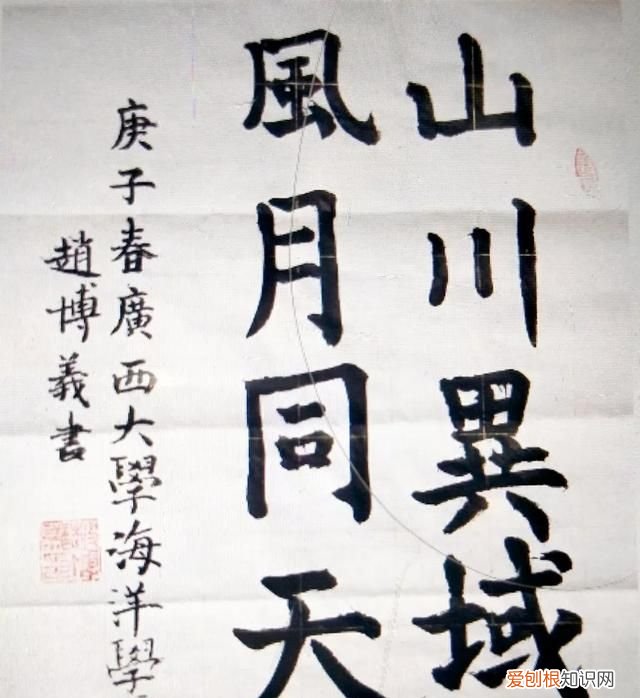 山川異域
風月同天
庚子春廣西大學海洋學
趙博義書
爱刨根知识网